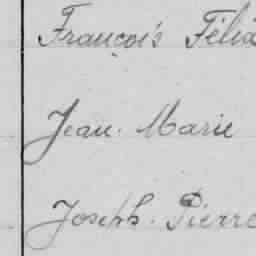 François Félix
Jean. Marie
Joseph. Pierre